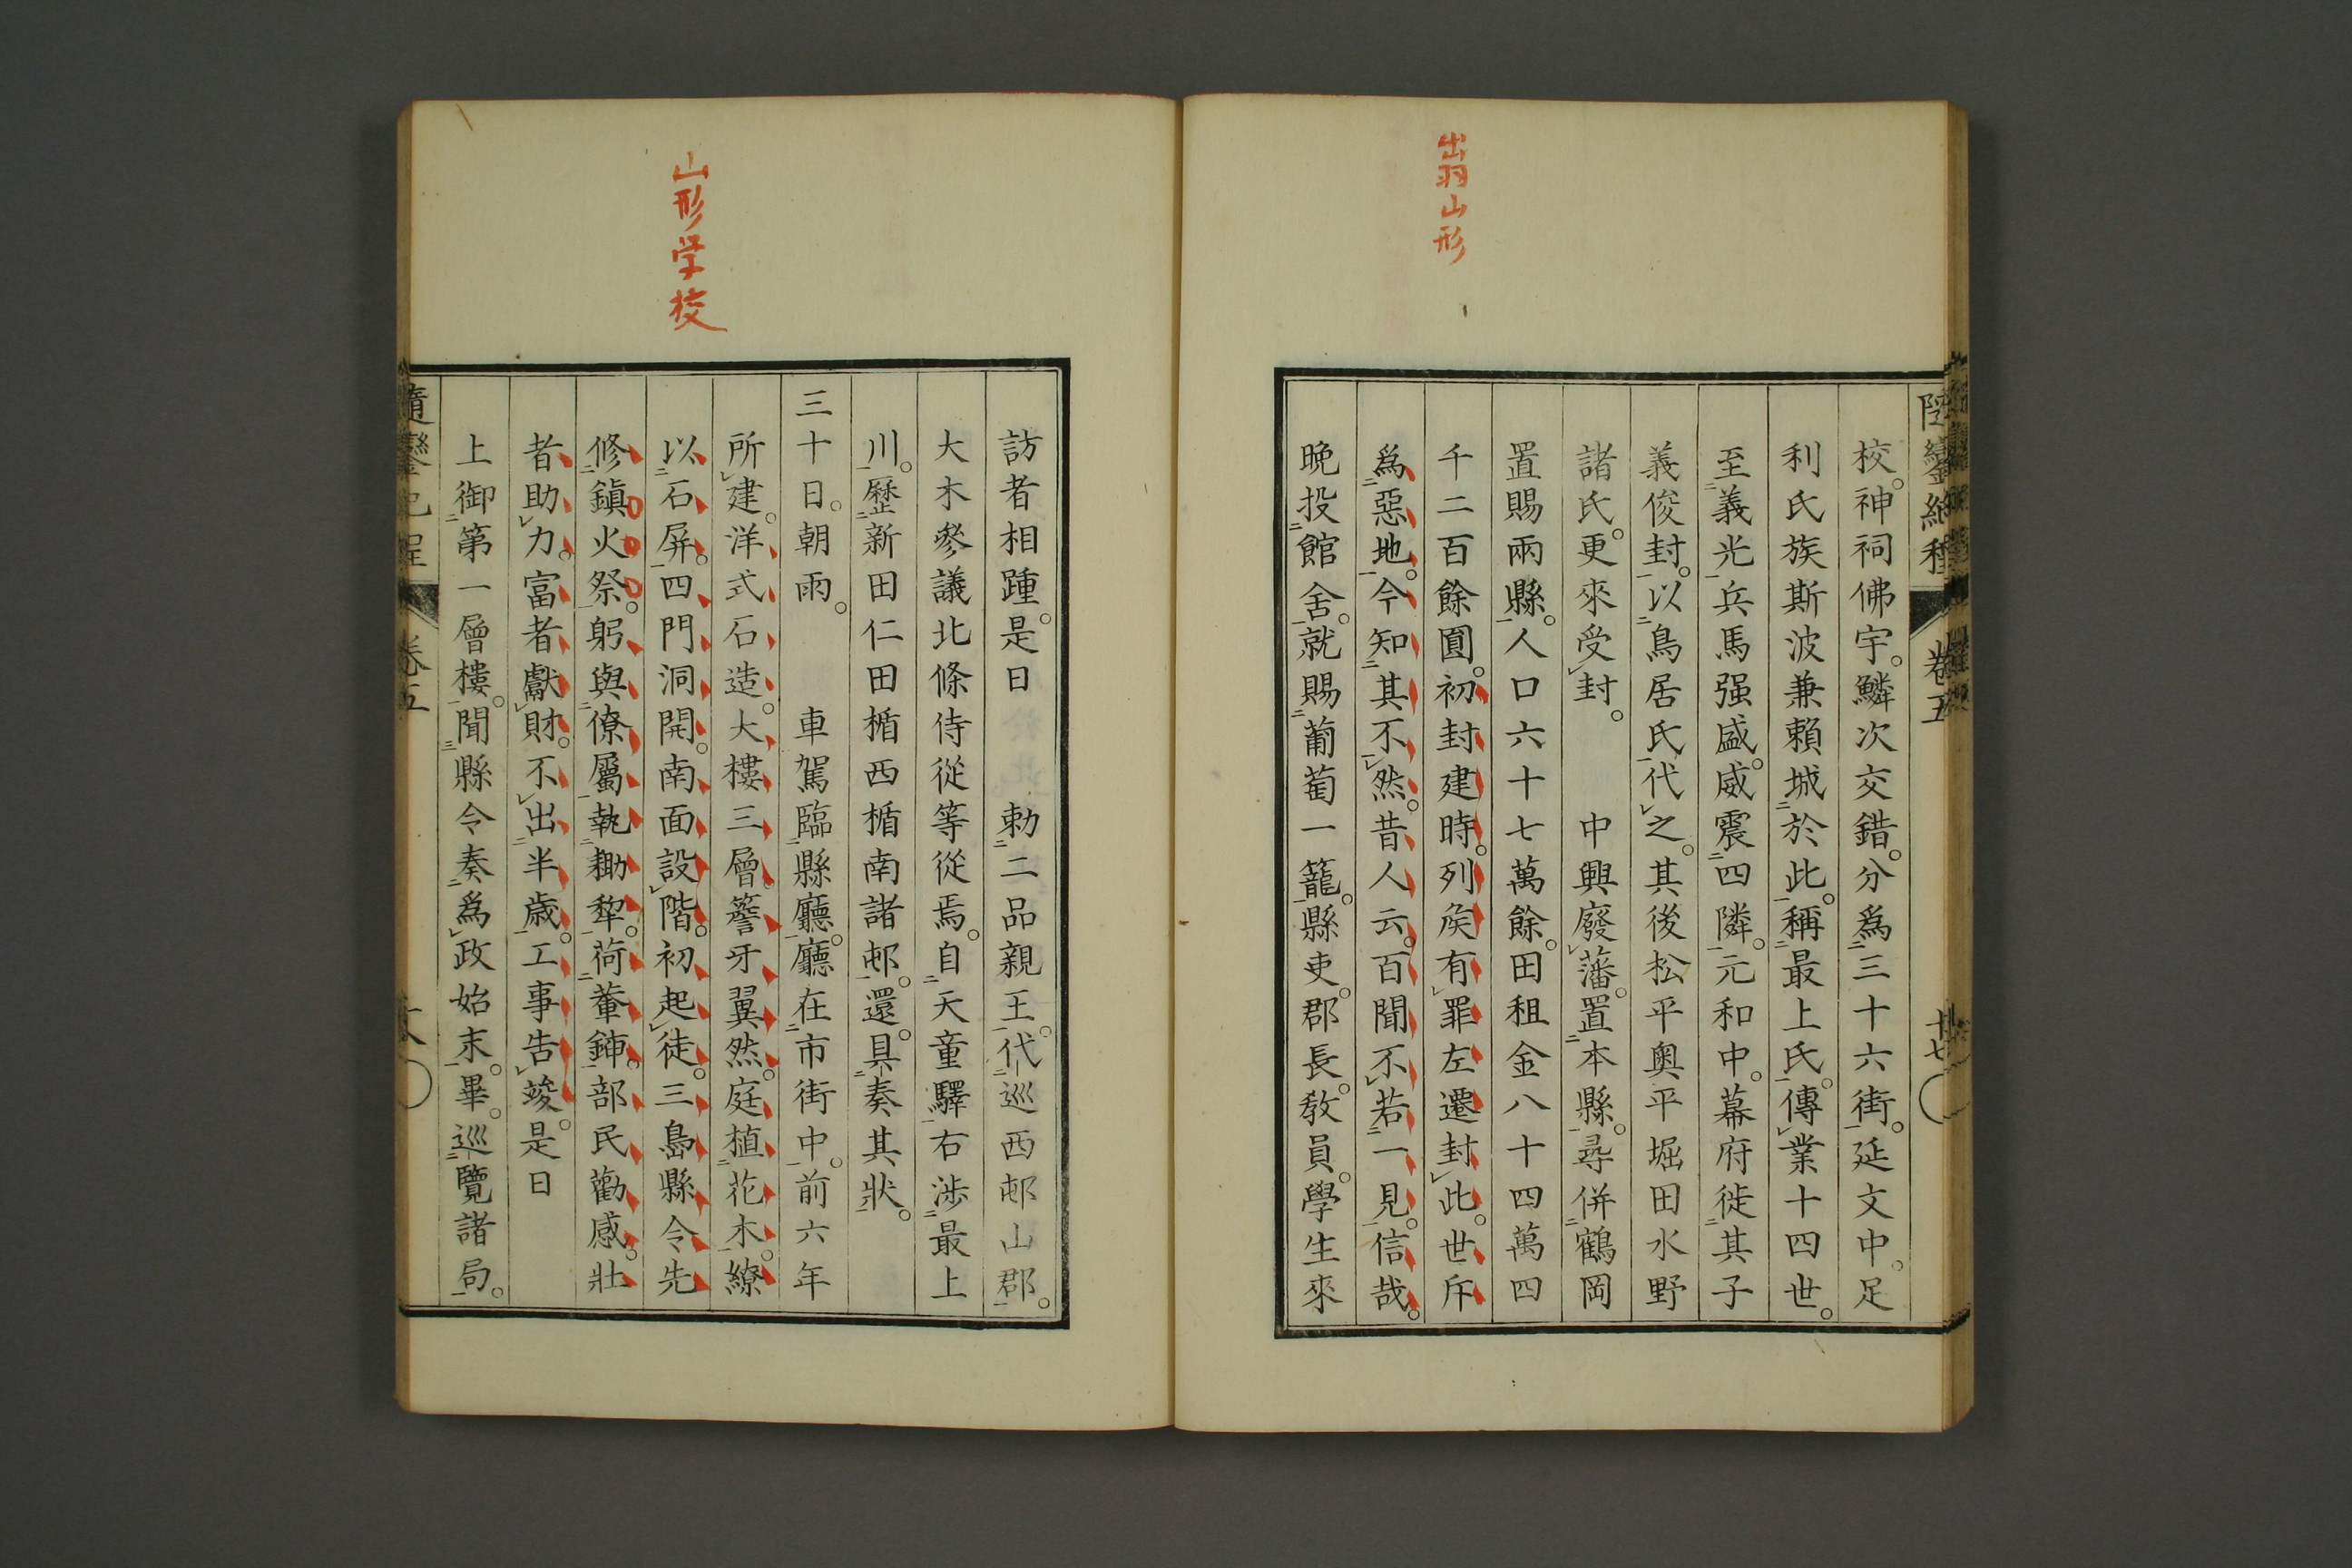 出羽山形
校。神祠佛宇。鱗次交錯。分爲三十六街。延文中。足
利氏族斯波兼賴城於此。稱最上氏。傳業十四世。
至義光兵馬强盛。威震四隣。元和中。幕府徙其子
義俊封。以鳥居氏代之。其後松平奧平堀田水野
諸氏。更來受封。　中興廢藩。置本縣。尋併鶴岡
置賜兩縣。人口六十七萬餘。田租金八十四萬四
千二百餘圓。初封建時。列矦有罪左遷封此。世斥
爲惡地。今知其不然。昔人云。百聞不若一見。信哉。
晩投館舍。就賜葡萄一籠。縣吏。郡長。敎員。學生來
山形学校
訪者相踵。是日　勅二品親王。代巡西邨山郡。
大木參議北條侍從等從焉。自天童驛右涉最上
川。歷新田仁田楯西楯南諸邨。還。具奏其狀。
三十日。朝雨。　車駕臨縣廳。廳在市街中。前六年
所建。洋式石造。大樓三層。簷牙翼然。庭植花木。繚
以石屏。四門洞開。南面設階。初起徒。三島縣令先
修鎭火祭。躬與僚屬執耡犂。荷畚鍤。部民勸感。壯
者助力。富者獻財。不出半歲。工事告竣。是日
上御第一層樓。聞縣令奏爲政始末。畢。巡覽諸局。
隨鑾紀程　卷五